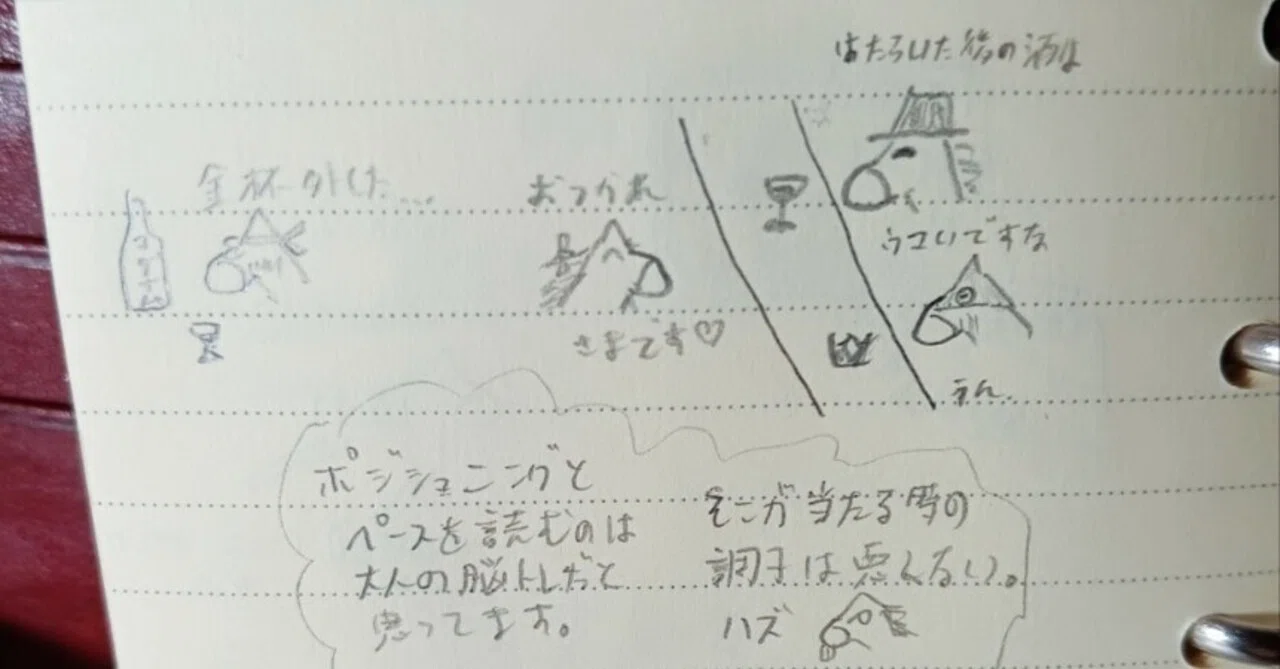 はたらいた後の酒は
金杯外した...
おつかれ
さまです♡
ウマいですな
うん
ポジショニングと
ペースを読むのは
大人の脳トレだと
思ってます。
そこが当たる時の
調子は悪くない。
ハズ